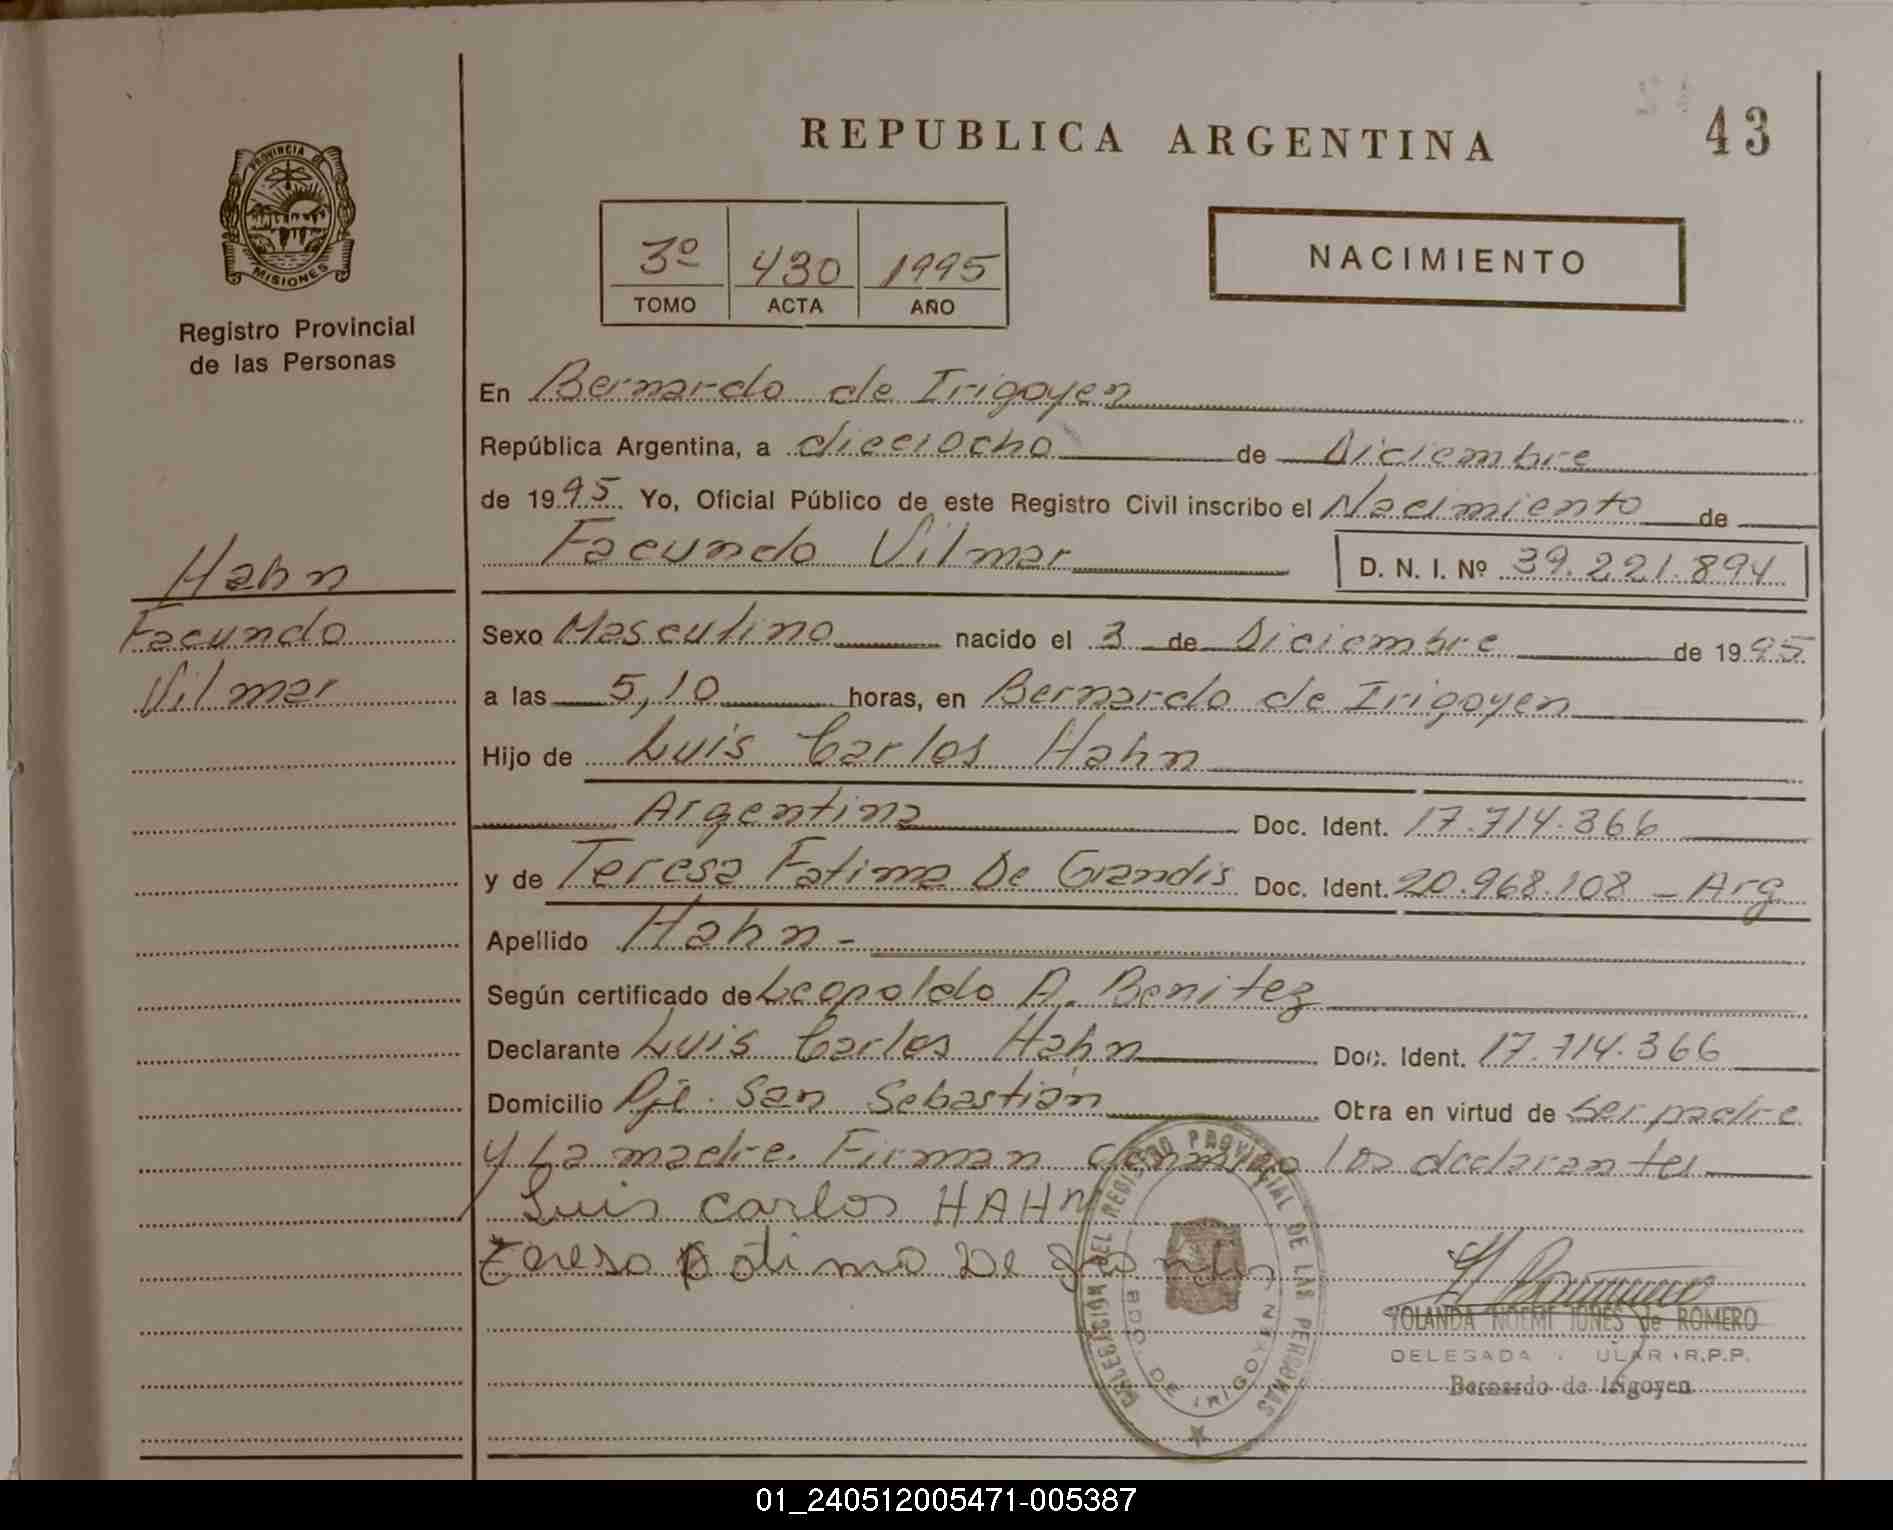 PROVINCIA DE
MISIONES
Registro Provincial
de las Personas
Hahn
Facundo
Vilmar
REPUBLICA ARGENTINA
43
3º 430 1995
TOMO ACTA AÑO
NACIMIENTO
En Bernardo de Irigoyen
República Argentina, a dieciocho de Diciembre
de 1995 Yo, Oficial Público de este Registro Civil inscribo el Nacimiento de
Facundo Vilmar D. N. I. Nº 39.221.894
Sexo Masculino nacido el 3 de Diciembre de 1995
a las 5,10 horas, en Bernardo de Irigoyen
Hijo de Luis Carlos Hahn
Argentina Doc. Ident. 17.714.366
y de Teresa Fatima De Grandis Doc. Ident. 20.968.108 - Arg
Apellido Hahn -
Según certificado de Leopoldo A. Benitez
Declarante Luis Carlos Hahn Doc. Ident. 17.714.366
Domicilio Pje. San Sebastián Obra en virtud de ser padre
y La madre. Firman conmigo los declarantes
Luis Carlos HAHN
Teresa Fatima De
DELEGACION DEL REGISTRO PROVINCIAL DE LAS PERSONAS
BDO. DE IRIGOYEN
YOLANDA NOEMI de ROMERO
DELEGADA R.P.P.
Bernardo de Irigoyen
01_240512005471-005387